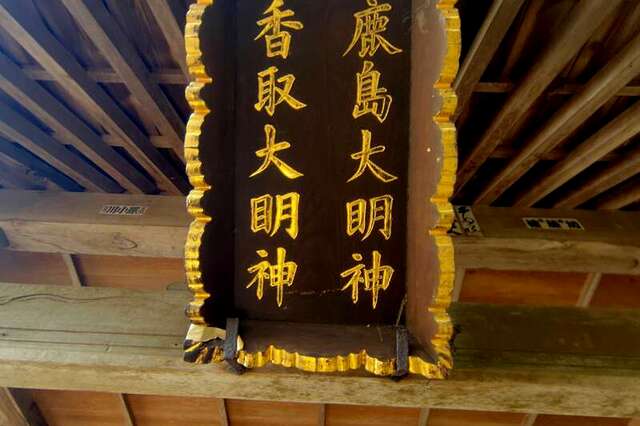 鹿島大明神
香取大明神